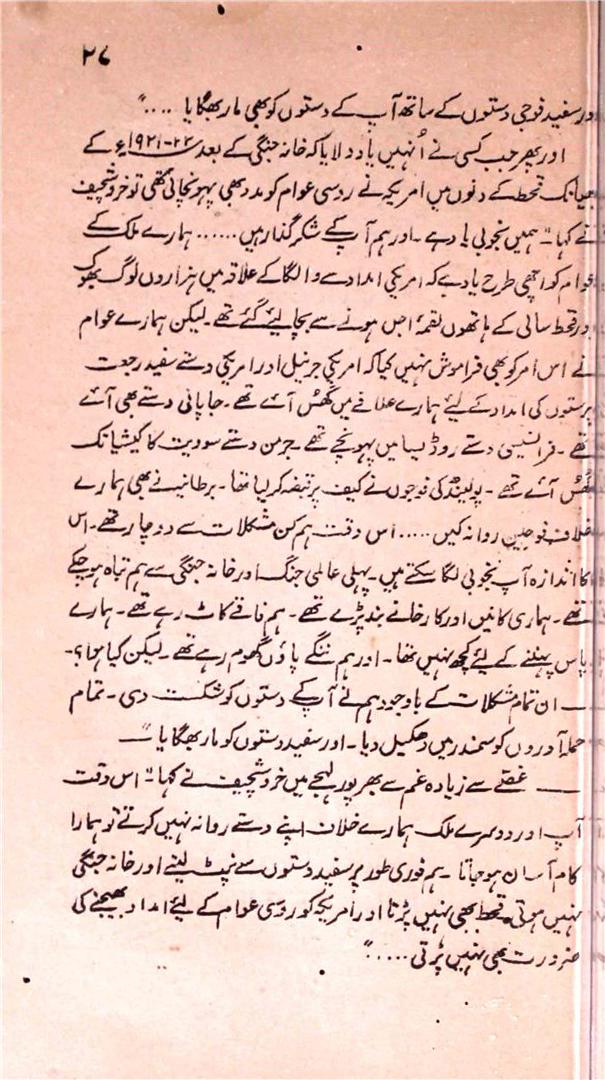 ۲۷
اور سفید فوجی دستوں کے ساتھ آپ کے دستوں کو بھی مار بھگایا ....“
اور پھر جب کسی نے اُنہیں یاد دلایا کہ خانہ جنگی کے بعد ۲۲-۱۹۲۱ء کے
بھیانک قحط کے دنوں میں امریکہ نے روسی عوام کو مدد بھی پہونچائی تھی تو خروشچیف
نے کہا ”ہمیں بخوبی یاد ہے۔ اور ہم آپ کے شکر گذار ہیں...... ہمارے ملک کے
عوام کو اچھی طرح یاد ہے کہ امریکی امداد سے والگا کے علاقہ میں ہزاروں لوگ بھوک
اور قحط سالی کے ہاتھوں لقمۂ اجل ہونے سے بچا لیئے گئے تھے۔ لیکن ہمارے عوام
نے اس امر کو بھی فراموش نہیں کیا کہ امریکی جرنیل اور امریکی دستے سفید رجعت
پرستوں کی امداد کے لیئے ہمارے علاقے میں گھس آئے تھے۔ جاپانی دستے بھی آئے
تھے۔ فرانسیسی دستے روڈیسیا میں پہونچے تھے۔ جرمن دستے سوویت کاکیشیا تک
گھس آئے تھے۔ پولینڈ کی فوجوں نے کیف پر قبضہ کر لیا تھا۔ برطانیہ نے بھی ہمارے
خلاف فوجیں روانہ کیں..... اس وقت ہم کن مشکلات سے دو چار تھے۔ اس
کا اندازہ آپ بخوبی لگا سکتے ہیں۔ پہلی عالمی جنگ اور خانہ جنگی سے ہم تباہ ہو چکے
تھے۔ ہماری کانیں اور کارخانے بند پڑے تھے۔ ہم فاقے کاٹ رہے تھے۔ ہمارے
پاس پہننے کے لیئے کچھ نہیں تھا۔ اور ہم ننگے پاؤں گھوم رہے تھے۔ لیکن کیا ہوا؟۔
— ان تمام مشکلات کے باوجود ہم نے آپ کے دستوں کو شکست دی۔ تمام
حملہ آوروں کو سمندر میں دھکیل دیا۔ اور سفید دستوں کو مار بھگایا“ —
— غصّے سے زیادہ غم سے بھرپور لہجے میں خروشچیف نے کہا ”اس وقت
آپ اور دوسرے ملک ہمارے خلاف اپنے دستے روانہ نہیں کرتے تو ہمارا
کام آسان ہو جاتا۔ ہم فوری طور پر سفید دستوں سے نپٹ لیتے اور خانہ جنگی
نہیں ہوتی۔ قحط بھی نہیں پڑتا اور امریکہ کو روسی عوام کے لیئے امداد بھیجنے کی
ضرورت بھی نہیں پڑتی.....“